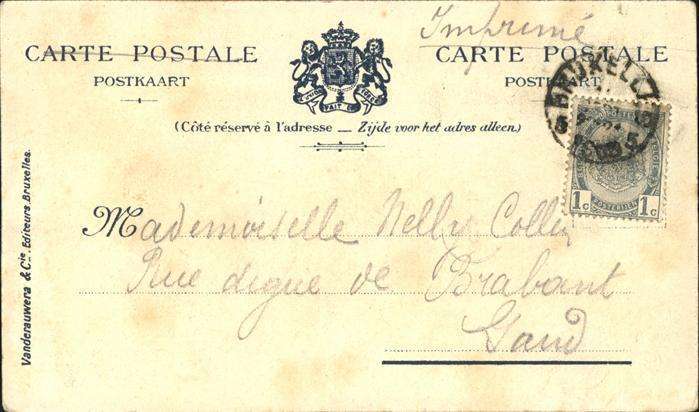 Imprimé
CARTE POSTALE
POSTKAART
CARTE POSTALE
POSTKAART
BRUXELLES
5
(Côté réservé à l'adresse — Zijde voor het adres alleen.)
1c POSTERIJEN 1c
Mademoiselle Nelly Collin
Rue digue de Brabant
Gand
Vanderauwera & Cie. Editeurs Bruxelles.